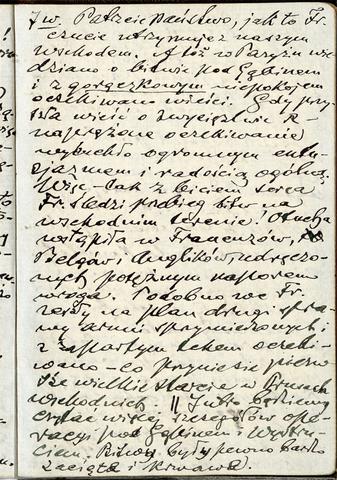 7 w. Patrzcie państwo, jak to Fr.
czucie utrzymuje z naszym
wschodem. A toż w Paryżu wie
dziano o bitwie pod Gąbinem
i z gorączkowym niepokojem
oczekiwano wieści. Gdy przy
szła wieść o zwycięstwie R-
naprężone oczekiwanie
wybuchło ogromnym entu-
zjazmem i radością ogólną.
Więc - tak z biciem serca
Fr. śledzi przebieg bitw na
wschodnim terenie! Otucha
wstąpiła w Francuzów,
Belgów i Anglików, udręczo-
nych potężnym naporem
wroga. Podobno we Fr.
zeszły na plan drugi spra
wy armii sprzymierzonych i
z zapartym tchem oczeki-
wano - co przyniesie pierw
sze wielkie starcie w Prusach
wschodnich || Jutro będziemy
czytać więcej szczegółów ope-
racji pod Gąbinem i Wystru-
ciem. Bitwy były pewno bardzo
zacięte i krwawe.